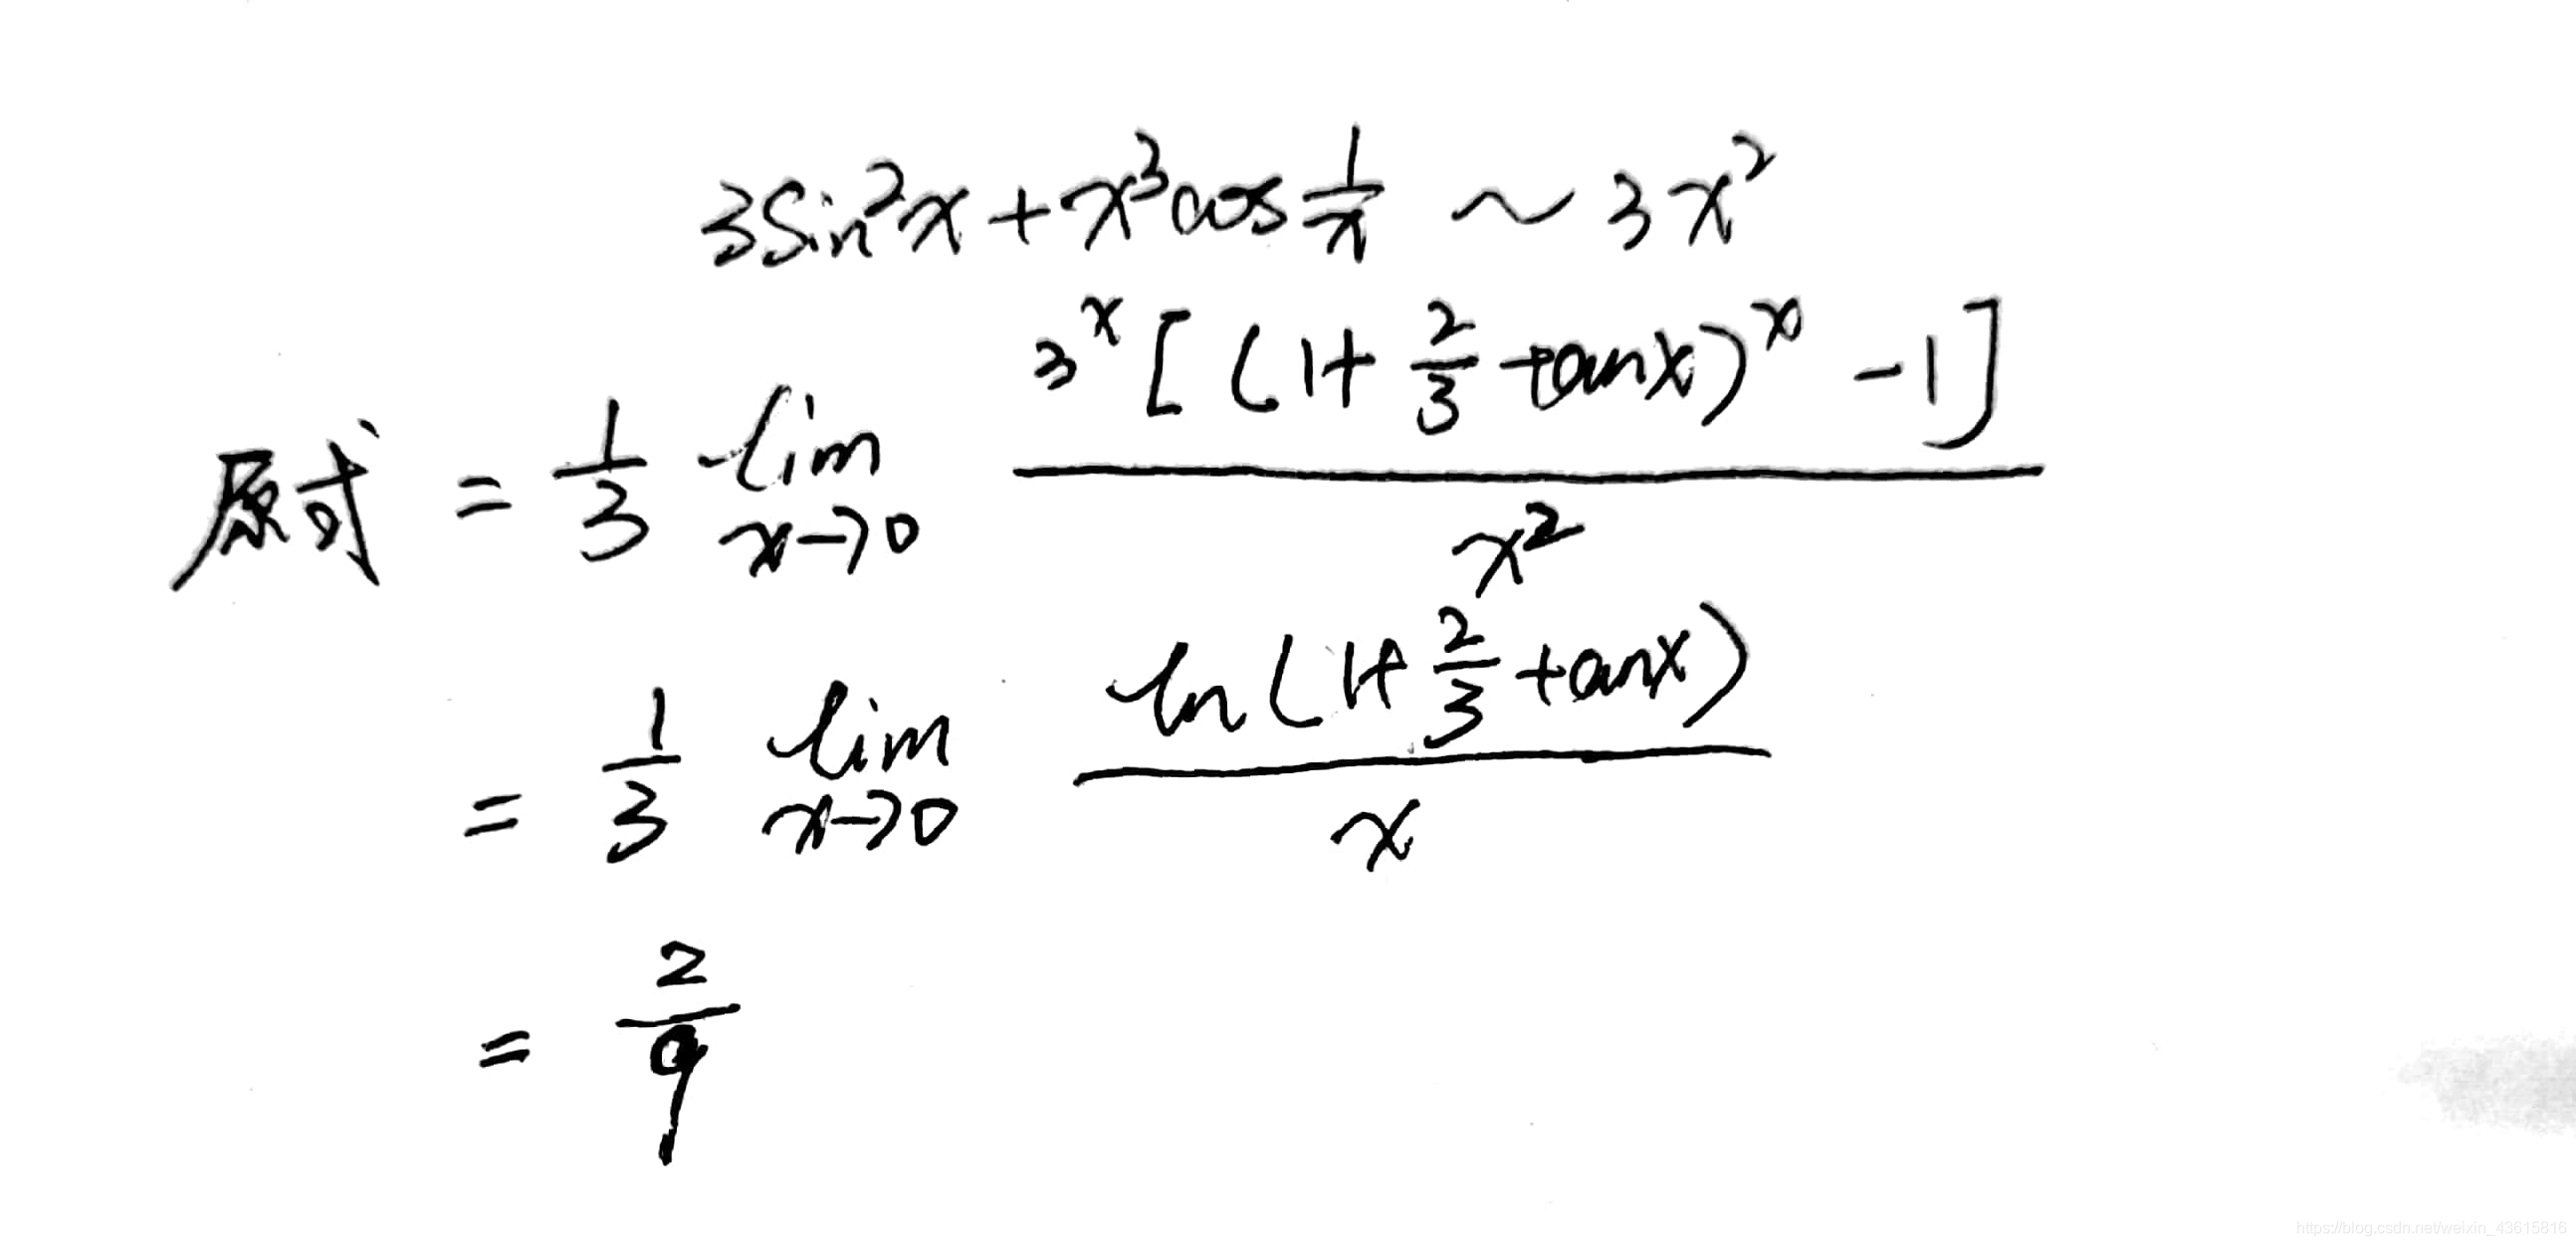 3sin²x + x³cos 1/x ~ 3x²
原式 = 1/3 lim x→0 3^x[(1+ 2/3 tanx)^x -1] / x²
= 1/3 lim x→0 ln(1+ 2/3 tanx) / x
= 2/9
https://blog.csdn.net/weixin_43615816